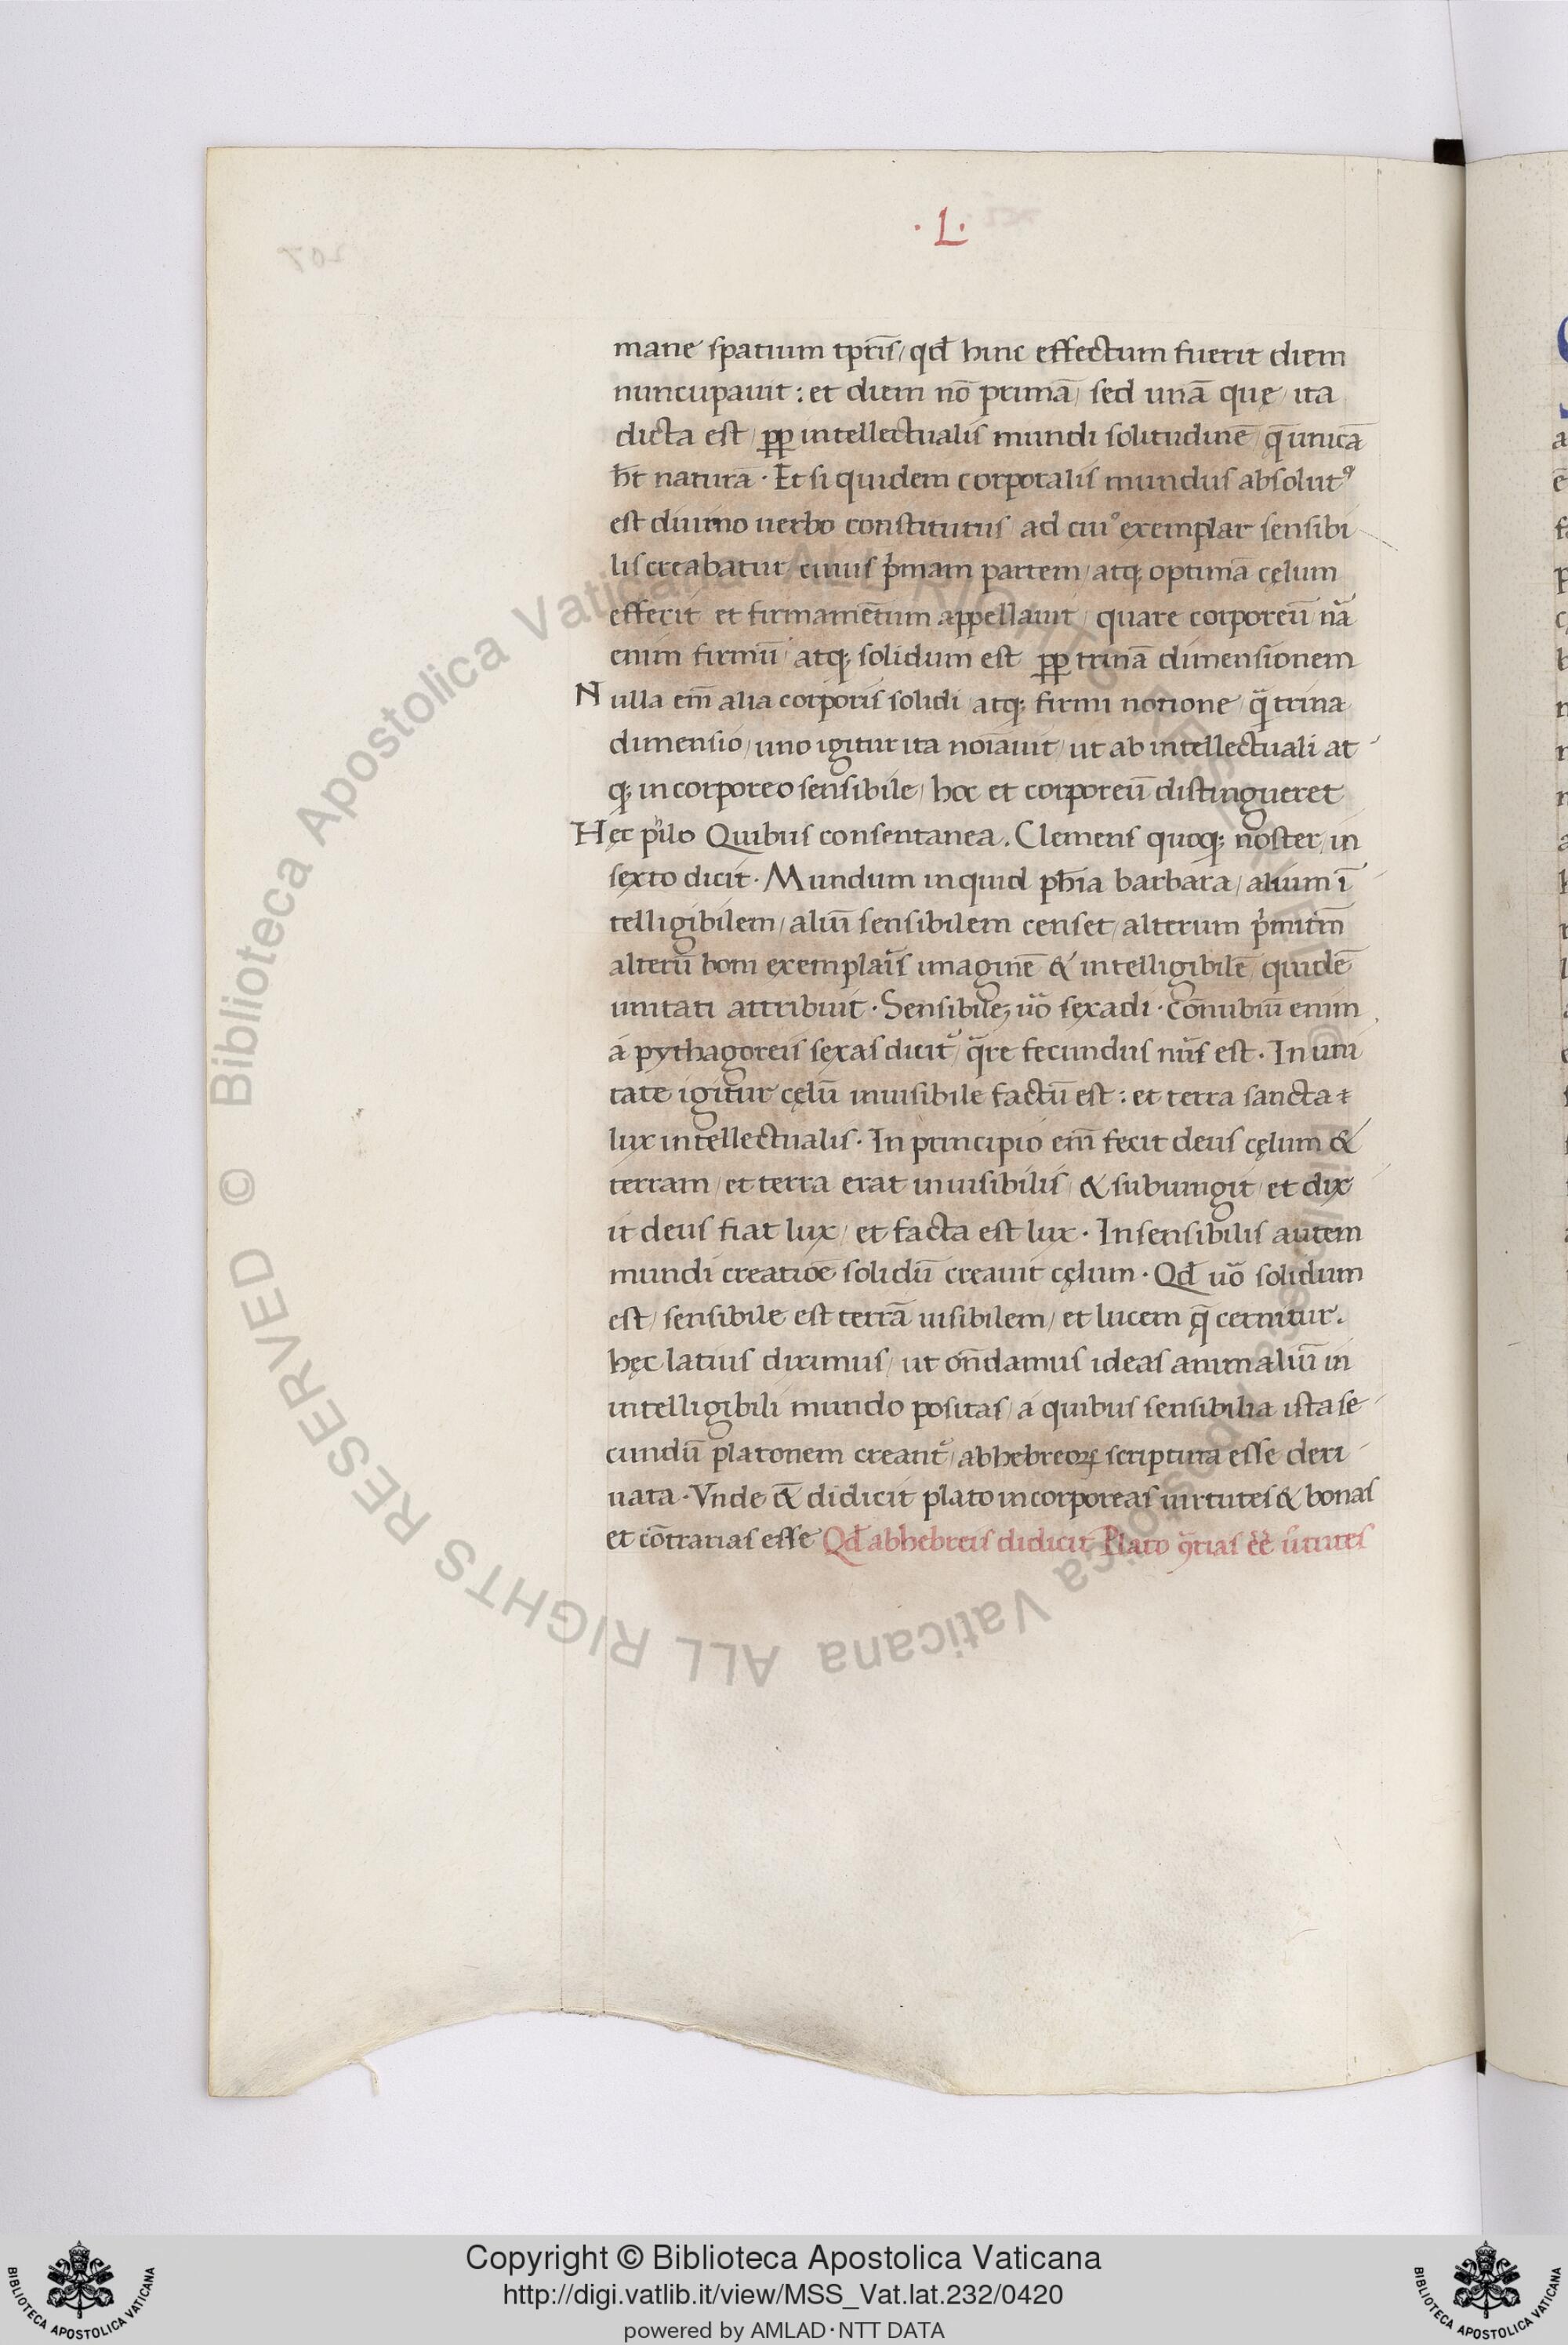 · L ·
mane spatium tp̄ris / qd̄ hinc effectum fuerit diem
nuncupauit : et diem nō primā / sed unā quę / ita
dicta est / ꝓp intellectualis mundi solitudinē / q̄ unicā
h̄t naturā · Et si quidem corporalis mundus absolutꝰ
est diuino uerbo constitutus ad cuiꝰ exemplar sensibi
lis creabatur / cuius pͥmam partem / atq; optimā cęlum
efferit et firmamētum appellauit / quare corporeū nā
enim firmū / atq; solidum est ꝓp trinā dimensionem
Nulla em̄ alia corporis solidi / atq; firmi notione / q̄ trina
dimensio / uno igitur ita noīauit / ut ab intellectuali at
q; incorporeo sensibile / hoc et corporeū distingueret
Hęc pͪilo Quibus consentanea. Clemens quoq; noster / in
sexto dicit · Mundum inquid ph̄ia barbara / alium ī
telligibilem / aliū sensibilem censet / alterum pͥmitm̄
alterū boni exemplaīs imaginē & intelligibilē / quidē
unitati attribuit · Sensibilē uō sexadi · cōnubiū enim
á pythagoreis sexas dicit᷑ / q̄re fecundus nūs est · In uni
tate igitur cęlū inuisibile factū est : et terra sancta ⁊
lux intellectualis · In principio em̄ fecit deus cęlum &
terram / et terra erat inuisibilis / & subiungit / et dix
it deus fiat lux / et facta est lux · In sensibilis autem
mundi creatiōe solidū creauit cęlum · Qd̄ uō solidum
est / sensibile est terrā uisibilem / et lucem q̄ cernitur.
hęc latius diximus / ut on̄damus ideas animaliū in
intelligibili mundo positas / á quibus sensibilia ista se
cundū platonem creant᷑ / ab hebreoꝝ scriptura esse deri
uata · Vnde & didicit plato incorporeas uirtutes & bonas
et cōtrarias esse Qd̄ ab hebreis didicit Plato ꝯ̄rias ēē ūtutes
Biblioteca Apostolica Vaticana ALL RIGHTS RESERVED ©
Copyright © Biblioteca Apostolica Vaticana
http://digi.vatlib.it/view/MSS_Vat.lat.232/0420
powered by AMLAD·NTT DATA
BIBLIOTECA APOSTOLICA VATICANA
BIBLIOTECA APOSTOLICA VATICANA